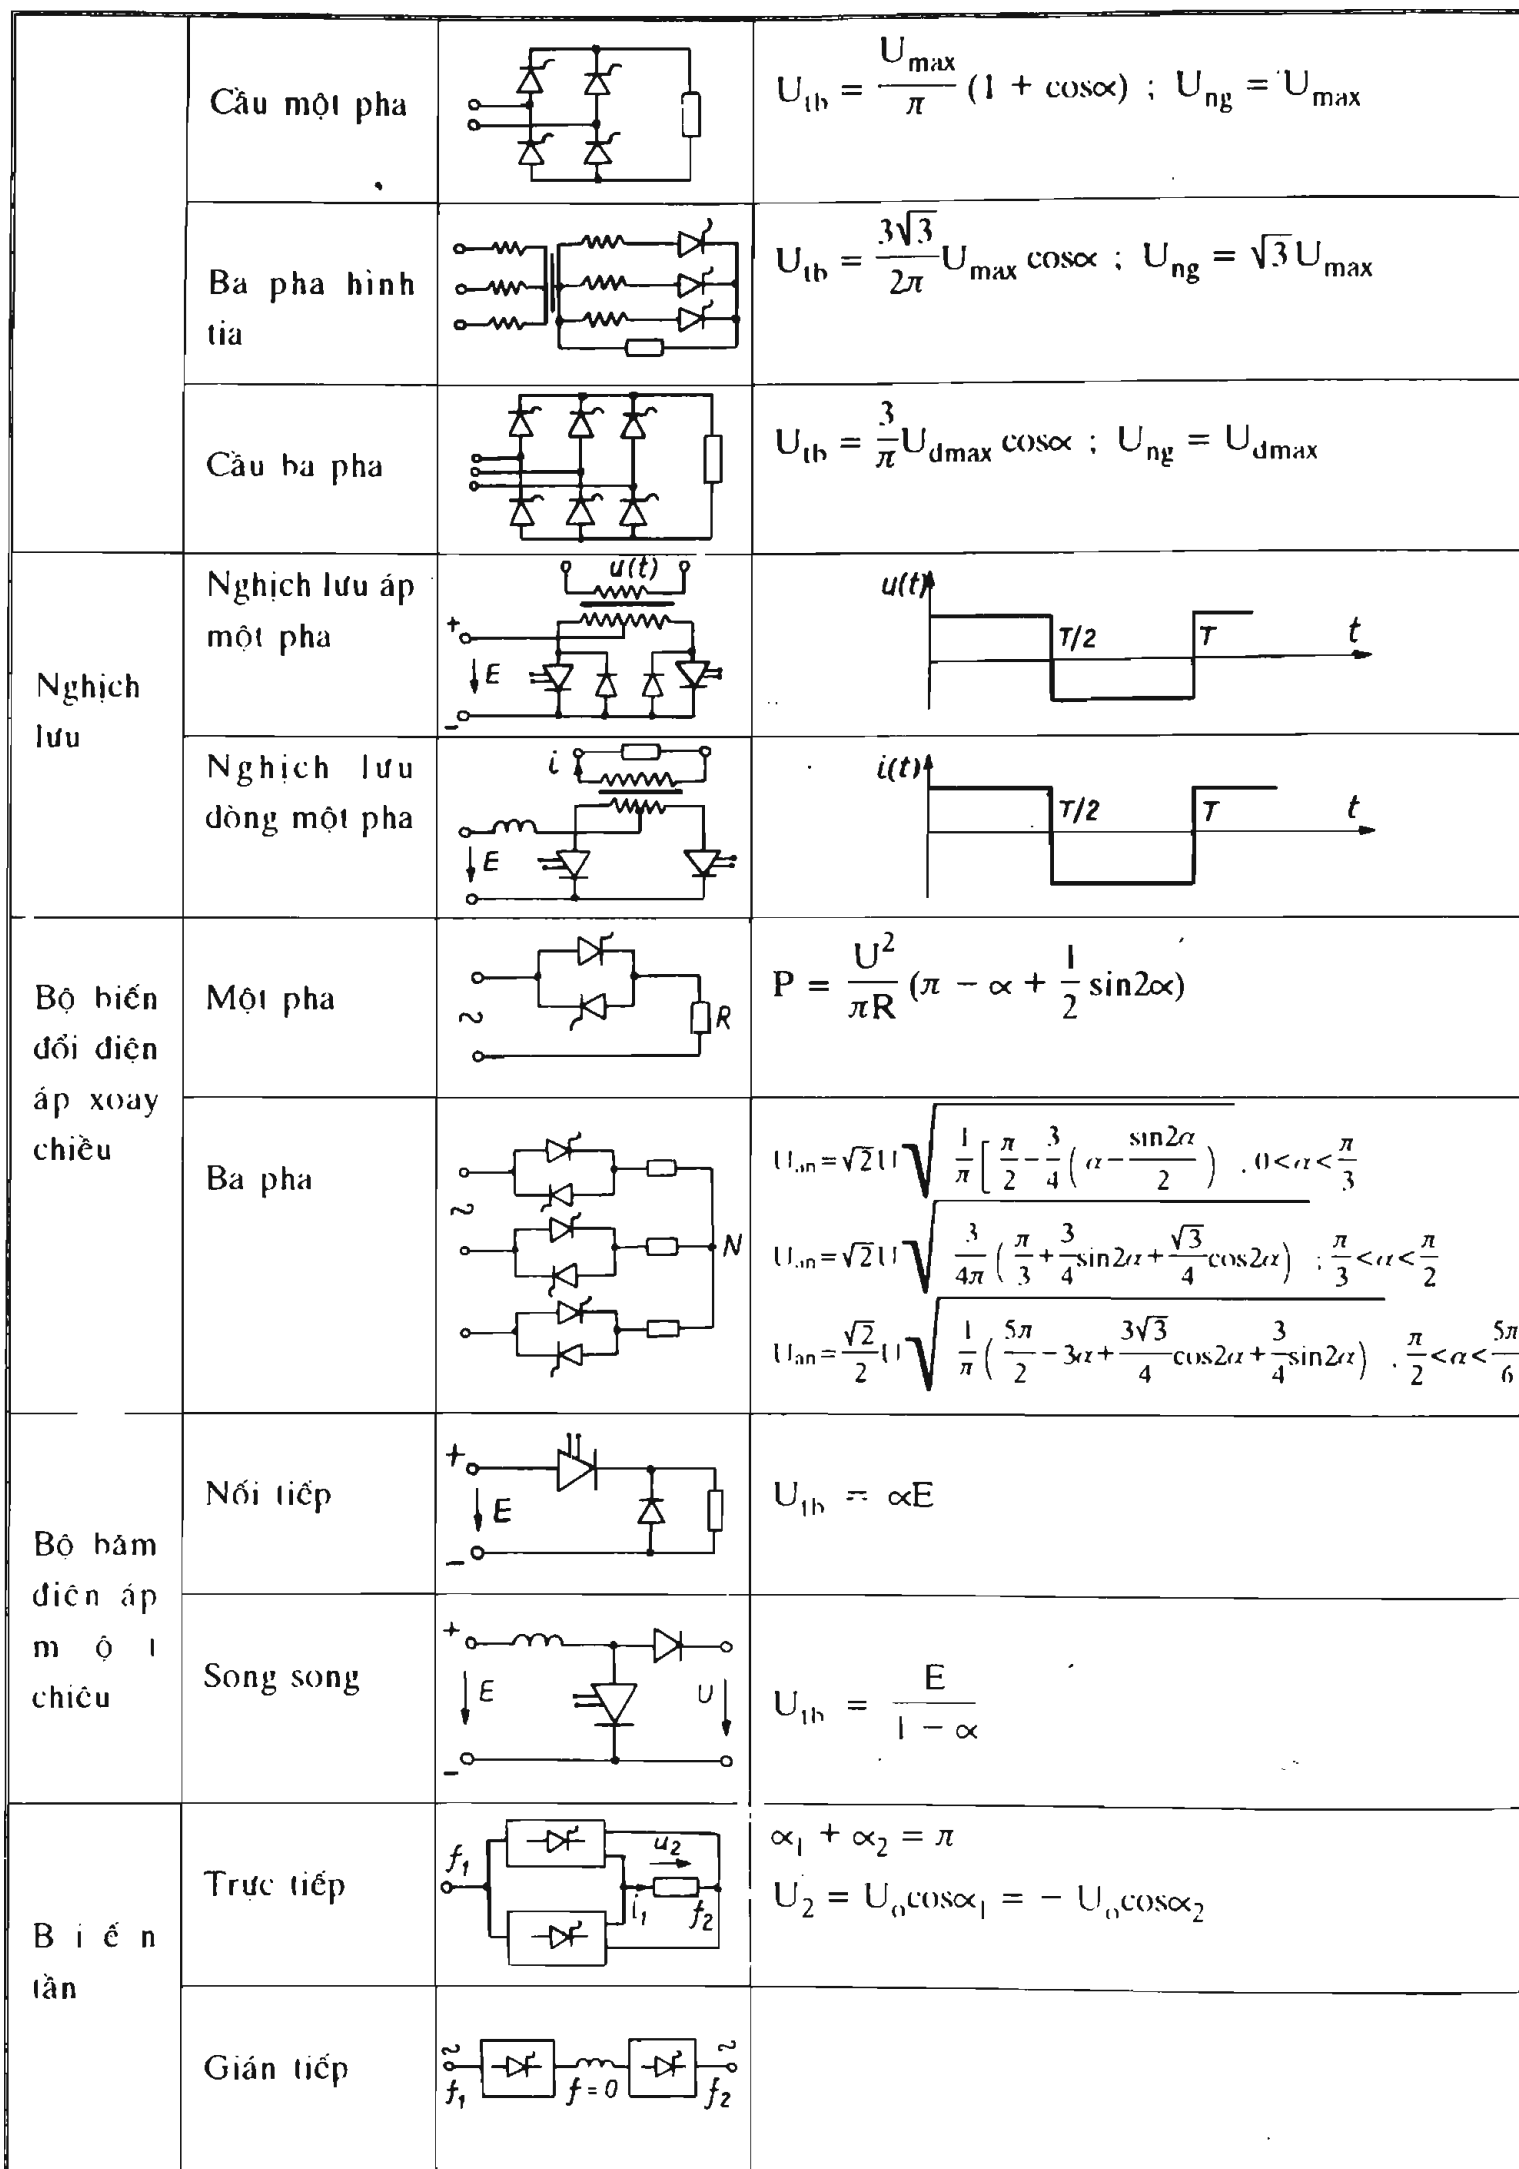 Cầu một pha
U_tb = U_max/π (1 + cosα) ; U_ng = U_max
Ba pha hình
tia
U_tb = 3√3/2π U_max cosα ; U_ng = √3 U_max
Cầu ba pha
U_tb = 3/π U_dmax cosα ; U_ng = U_dmax
Nghịch
lưu
Nghịch lưu áp
một pha
u(t)
+
E
−
u(t)
T/2
T
t
Nghịch lưu
dòng một pha
i
E
i(t)
T/2
T
t
Bộ biến
đổi điện
áp xoay
chiều
Một pha
~
R
P = U²/πR (π − α + 1/2 sin2α)
Ba pha
~
N
U_an = √2 U √ 1/π [ π/2 − 3/4 ( α − sin2α/2 ) . 0<α<π/3
U_an = √2 U √ 3/4π ( π/3 + 3/4 sin2α + √3/4 cos2α ) ; π/3<α<π/2
U_an = √2/2 U √ 1/π ( 5π/2 − 3α + 3√3/4 cos2α + 3/4 sin2α ) . π/2<α<5π/6
Bộ băm
điện áp
một
chiều
Nối tiếp
+
E
−
U_tb = αE
Song song
+
E
U
−
U_tb = E/1 − α
Biến
tần
Trực tiếp
f₁
u₂
i₁
f₂
α₁ + α₂ = π
U₂ = U_o cosα₁ = − U_o cosα₂
Gián tiếp
~
~
f₁
f = 0
f₂